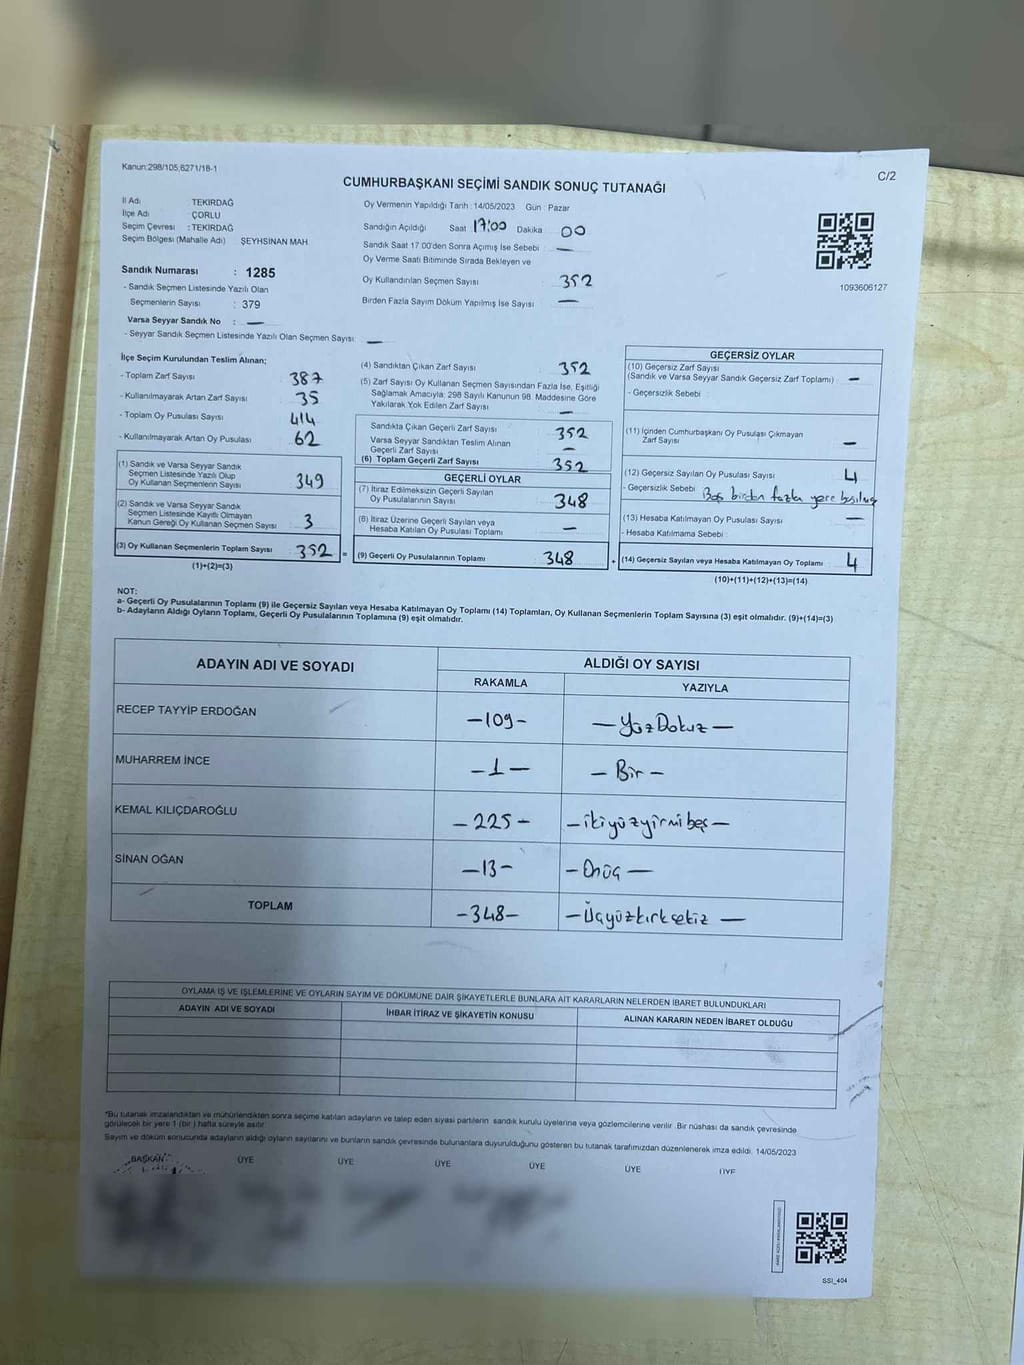 Kanun:298/105;6271/18-1
C/2
CUMHURBAŞKANI SEÇİMİ SANDIK SONUÇ TUTANAĞI
İl Adı TEKİRDAĞ
İlçe Adı : ÇORLU
Seçim Çevresi : TEKİRDAĞ
Seçim Bölgesi (Mahalle Adı) ŞEYHSİNAN MAH.
Oy Vermenin Yapıldığı Tarih : 14/05/2023 Gün : Pazar
Sandığın Açıldığı Saat 17:00 Dakika 00
Sandık Saat 17.00'den Sonra Açımış İse Sebebi —
Oy Verme Saati Bitiminde Sırada Bekleyen ve
Oy Kullandırılan Seçmen Sayısı 352
Birden Fazla Sayım Döküm Yapılmış İse Sayısı —
1093606127
Sandık Numarası : 1285
- Sandık Seçmen Listesinde Yazılı Olan
Seçmenlerin Sayısı : 379
Varsa Seyyar Sandık No : —
- Seyyar Sandık Seçmen Listesinde Yazılı Olan Seçmen Sayısı: —
İlçe Seçim Kurulundan Teslim Alınan;
- Toplam Zarf Sayısı 387
- Kullanılmayarak Artan Zarf Sayısı 35
- Toplam Oy Pusulası Sayısı 414
- Kullanılmayarak Artan Oy Pusulası 62
(1) Sandık ve Varsa Seyyar Sandık
Seçmen Listesinde Yazılı Olup
Oy Kullanan Seçmenlerin Sayısı 349
(2) Sandık ve Varsa Seyyar Sandık
Seçmen Listesinde Kayıtlı Olmayan
Kanun Gereği Oy Kullanan Seçmen Sayısı 3
(3) Oy Kullanan Seçmenlerin Toplam Sayısı 352 =
(1)+(2)=(3)
(4) Sandıktan Çıkan Zarf Sayısı 352
(5) Zarf Sayısı Oy Kullanan Seçmen Sayısından Fazla İse, Eşitliği
Sağlamak Amacıyla; 298 Sayılı Kanunun 98. Maddesine Göre
Yakılarak Yok Edilen Zarf Sayısı —
Sandıkta Çıkan Geçerli Zarf Sayısı 352
Varsa Seyyar Sandıktan Teslim Alınan
Geçerli Zarf Sayısı —
(6) Toplam Geçerli Zarf Sayısı 352
GEÇERLİ OYLAR
(7) İtiraz Edilmeksizin Geçerli Sayılan
Oy Pusulalarının Sayısı 348
(8) İtiraz Üzerine Geçerli Sayılan veya
Hesaba Katılan Oy Pusulası Toplamı —
(9) Geçerli Oy Pusulalarının Toplamı 348 +
GEÇERSİZ OYLAR
(10) Geçersiz Zarf Sayısı
(Sandık ve Varsa Seyyar Sandık Geçersiz Zarf Toplamı) —
- Geçersizlik Sebebi :
(11) İçinden Cumhurbaşkanı Oy Pusulası Çıkmayan
Zarf Sayısı —
(12) Geçersiz Sayılan Oy Pusulası Sayısı 4
- Geçersizlik Sebebi birden fazla yere basılmış
(13) Hesaba Katılmayan Oy Pusulası Sayısı —
- Hesaba Katılmama Sebebi :
(14) Geçersiz Sayılan veya Hesaba Katılmayan Oy Toplamı 4
(10)+(11)+(12)+(13)=(14)
NOT:
a- Geçerli Oy Pusulalarının Toplamı (9) ile Geçersiz Sayılan veya Hesaba Katılmayan Oy Toplamı (14) Toplamları, Oy Kullanan Seçmenlerin Toplam Sayısına (3) eşit olmalıdır. (9)+(14)=(3)
b- Adayların Aldığı Oyların Toplamı, Geçerli Oy Pusulalarının Toplamına (9) eşit olmalıdır.
ADAYIN ADI VE SOYADI ALDIĞI OY SAYISI
RAKAMLA YAZIYLA
RECEP TAYYİP ERDOĞAN —109— —YüzDokuz—
MUHARREM İNCE —1— —Bir—
KEMAL KILIÇDAROĞLU —225— —ikiyüzyirmibeş—
SİNAN OĞAN —13— —Onüç—
TOPLAM —348— —Üçyüzkırksekiz—
OYLAMA İŞ VE İŞLEMLERİNE VE OYLARIN SAYIM VE DÖKÜMÜNE DAİR ŞİKAYETLERLE BUNLARA AİT KARARLARIN NELERDEN İBARET BULUNDUKLARI
ADAYIN ADI VE SOYADI İHBAR İTİRAZ VE ŞİKAYETİN KONUSU ALINAN KARARIN NEDEN İBARET OLDUĞU
*Bu tutanak imzalandıktan ve mühürlendikten sonra seçime katılan adayların ve talep eden siyasi partilerin sandık kurulu üyelerine veya gözlemcilerine verilir. Bir nüshası da sandık çevresinde
görülecek bir yere 1 (bir) hafta süreyle asılır.
Sayım ve döküm sonucunda adayların aldığı oyların sayılarını ve bunların sandık çevresinde bulunanlara duyurulduğunu gösteren bu tutanak tarafımızdan düzenlenerek imza edildi. 14/05/2023
BAŞKAN ÜYE ÜYE ÜYE ÜYE ÜYE ÜYE
SSI_404